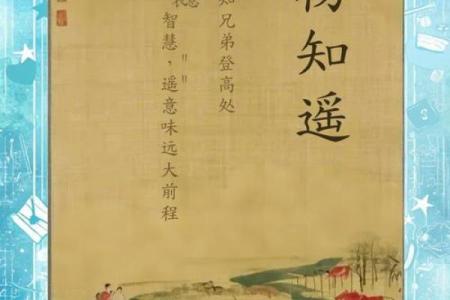 知遥
知兄弟登高处
智慧，遥意味远大前程